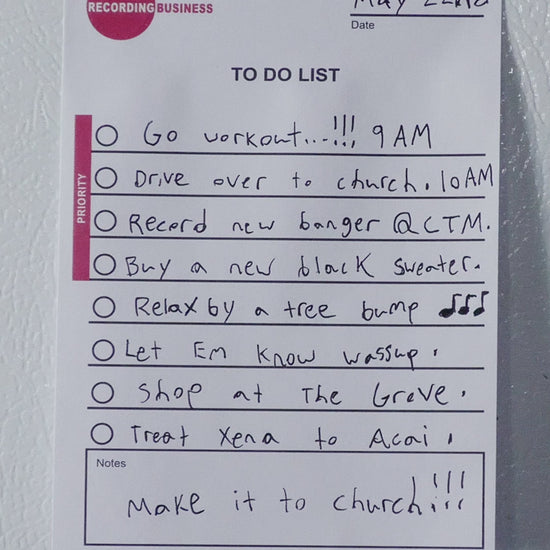 RECORDING BUSINESS
May 22nd
Date
TO DO LIST
PRIORITY
Go workout...!!! 9 AM
Drive over to church. 10 AM
Record new banger @CTM.
Buy a new black sweater.
Relax by a tree bump ♫♪♪
Let Em Know wassup.
Shop at The Grove.
Treat Xena to Acai.
Notes
Make it to church!!!!